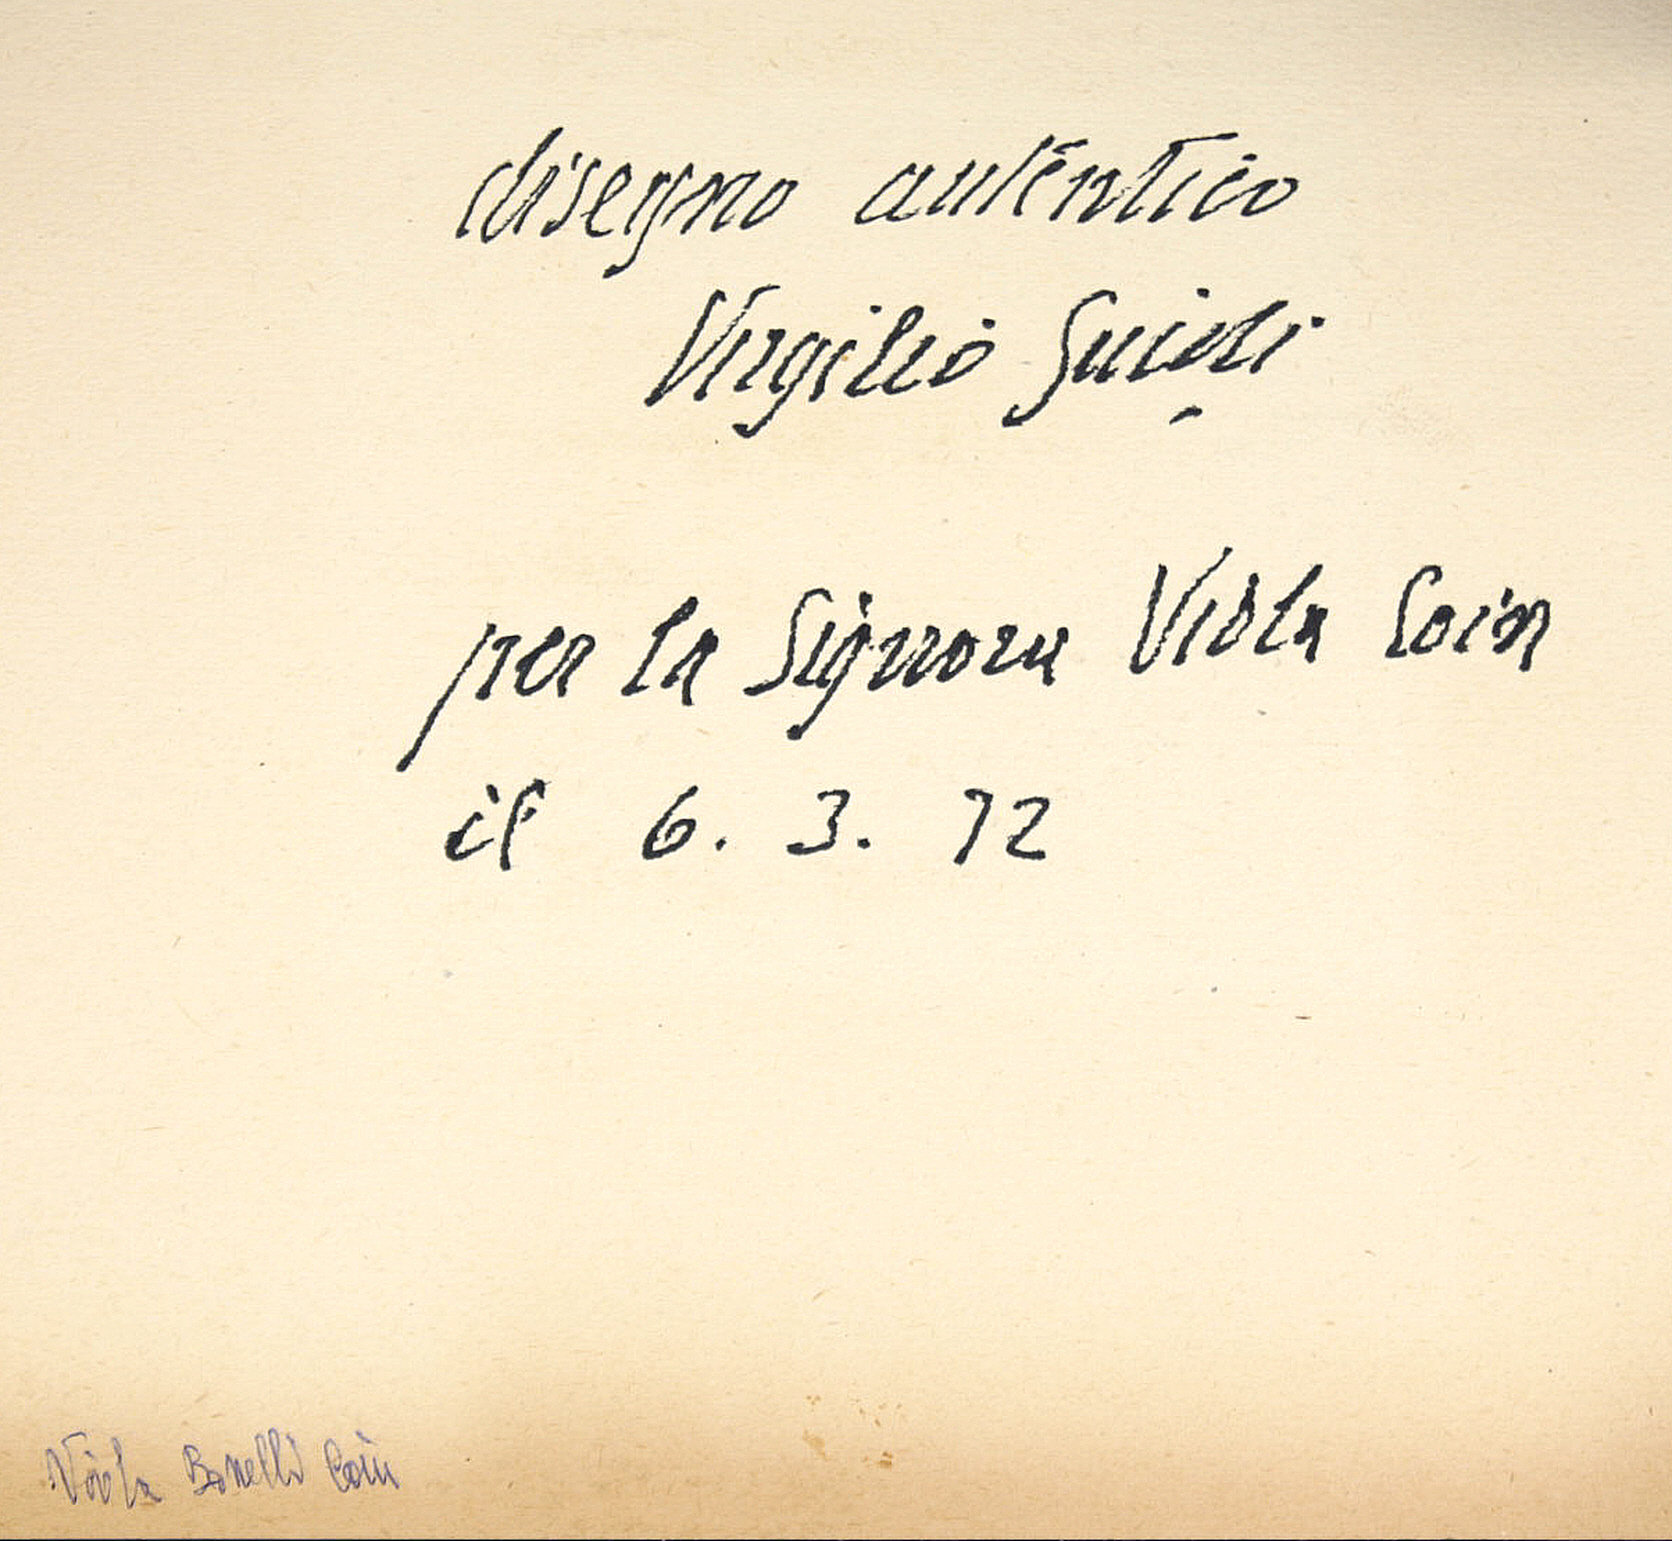 disegno autentico
Virgilio Guidi
per la Signora Viola Coin
il 6. 3. 72
Viola Bonelli Coin